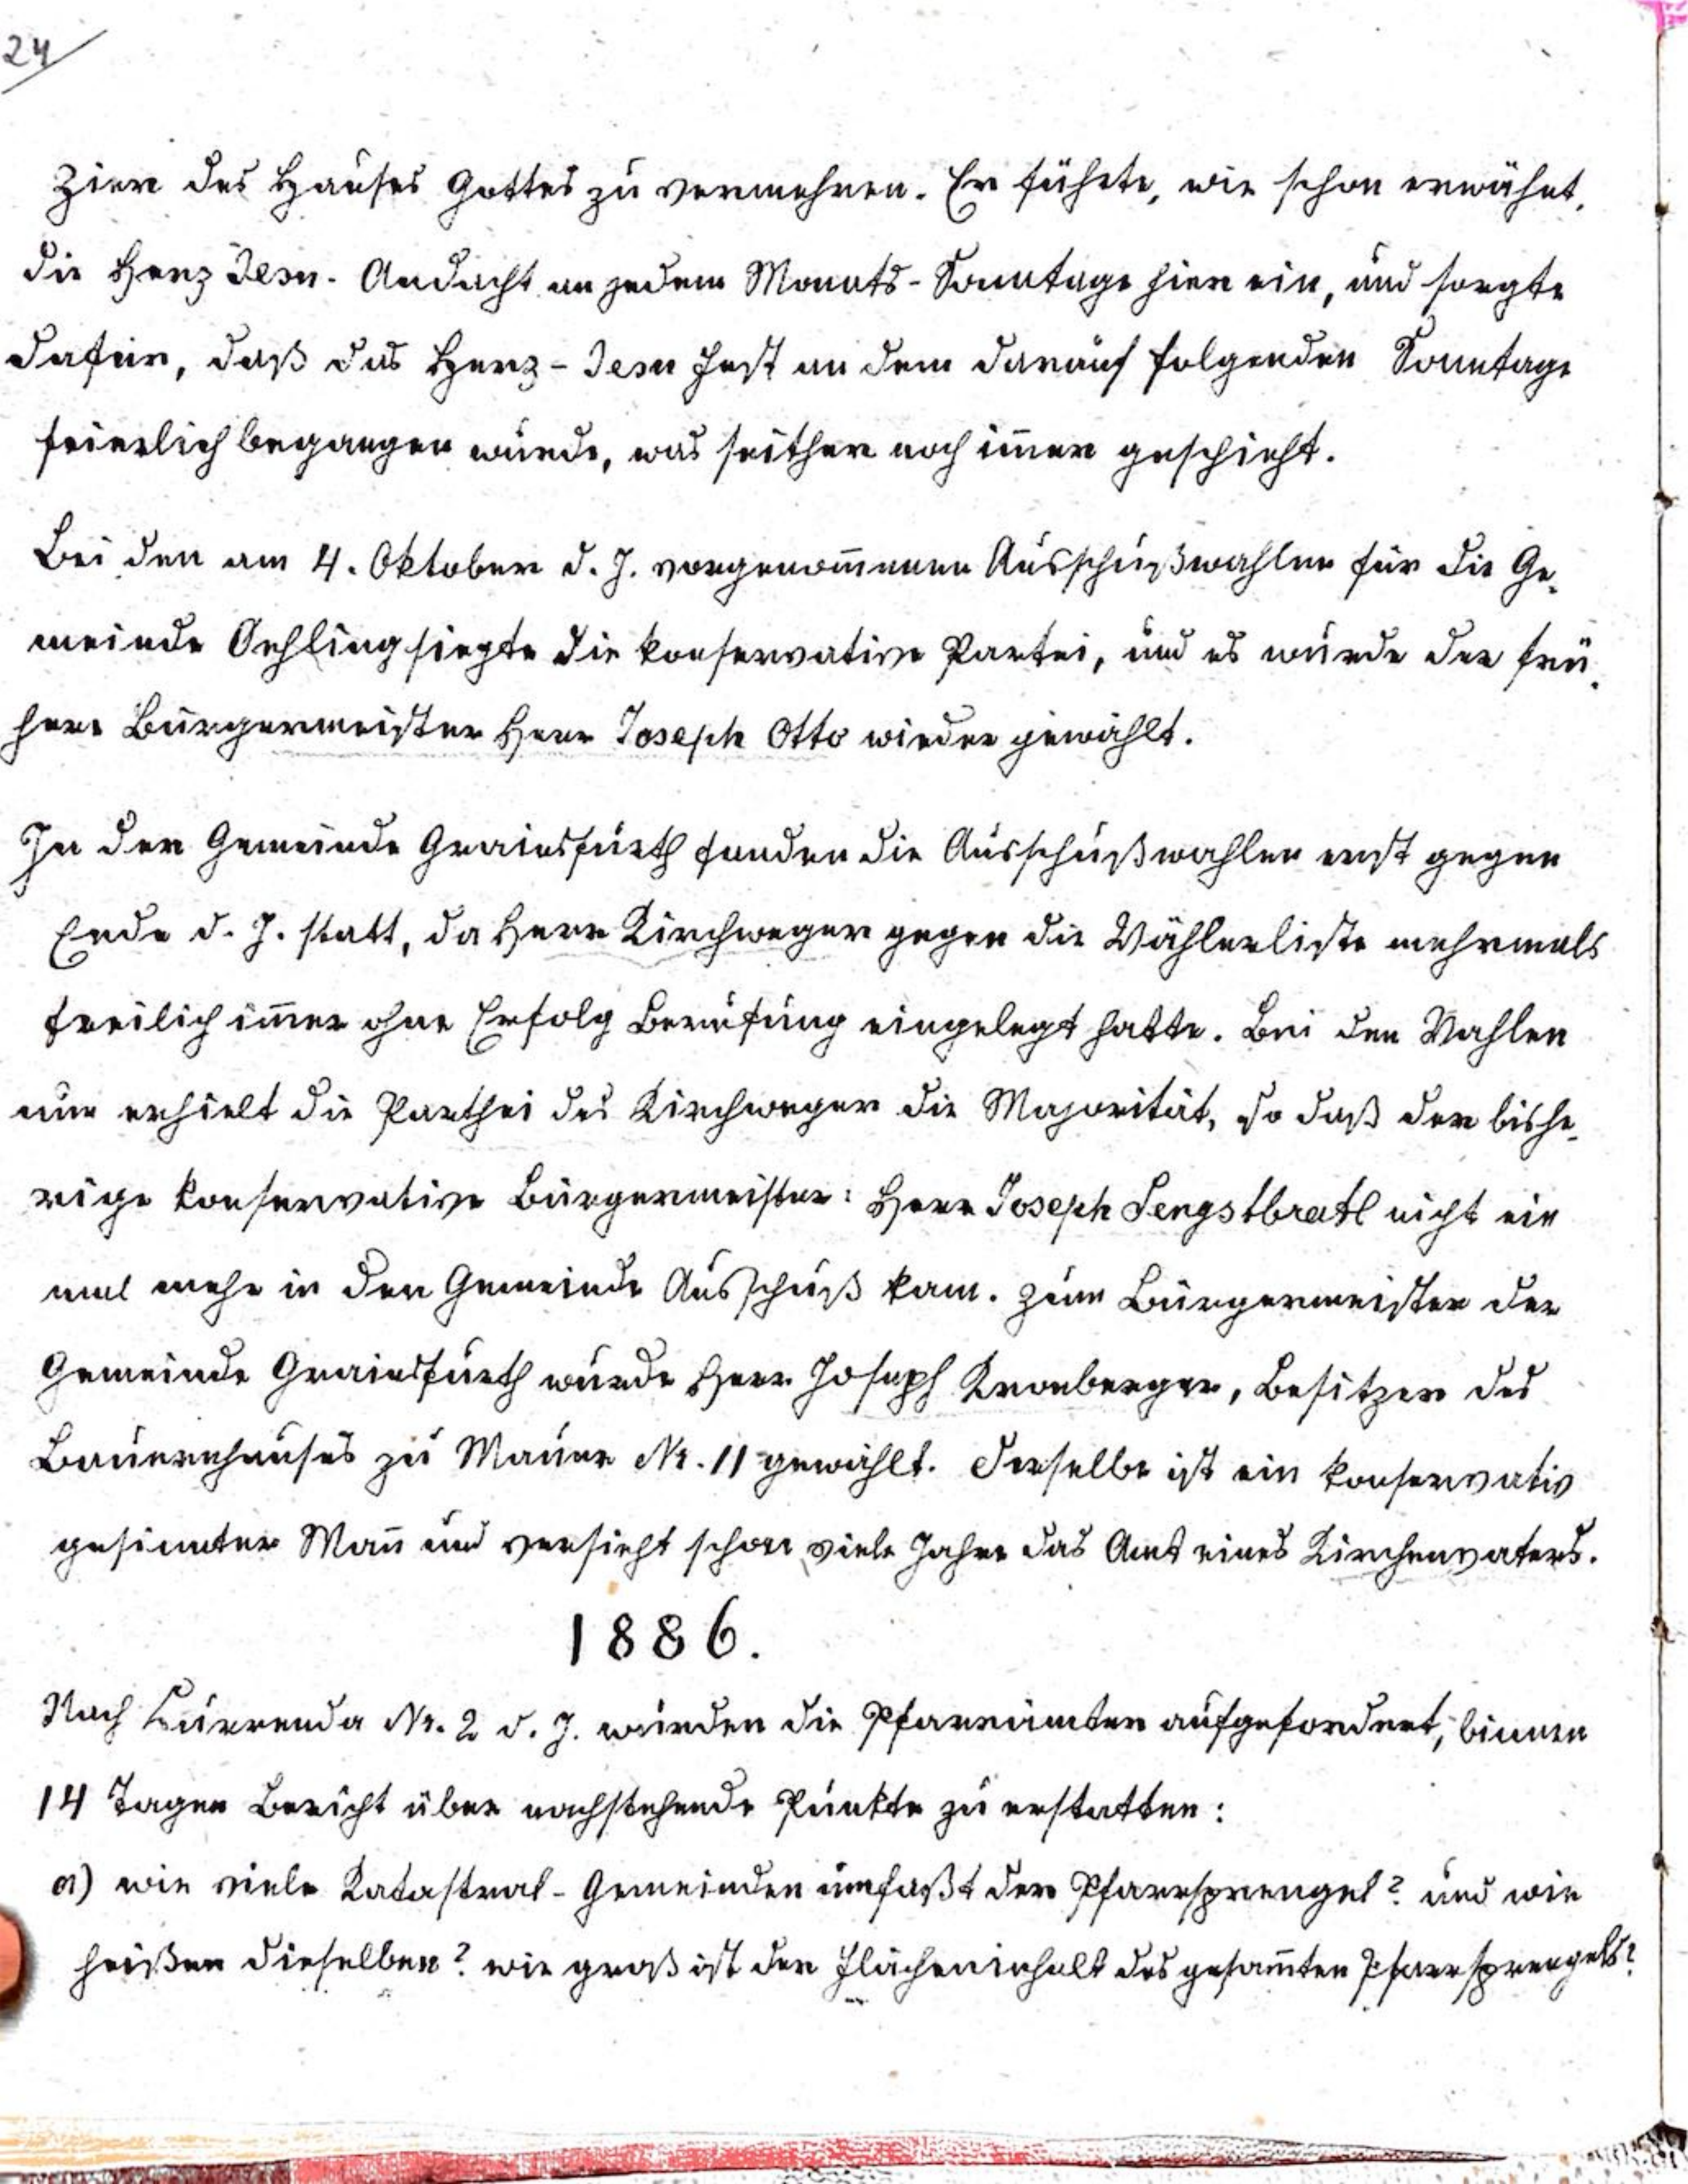 24
Zier des Hauses Gottes zu vermehren. Er führte, wie schon erwähnt,
die Herz Jesu- Andacht an jedem Monats-Sonntage hier ein, und sorgte
dafür, daß das Herz-Jesu Fest an dem darauf folgenden Sonntage
feierlich begangen wurde, was seither noch im̅er geschieht.
Bei den am 4. Oktober d. J. vorgenom̅enen Ausschußwahlen für die Ge-
meinde Oehling siegte die konservative Partei, und es wurde der frü-
here Bürgermeister Herr Joseph Otto wieder gewählt.
In der Gemeinde Grainsfurth fanden die Ausschußwahlen erst gegen
Ende d. J. statt, da Herr Kirchweger gegen die Wählerliste mehrmals
freilich im̅er ohne Erfolg Berufung eingelegt hatte. Bei den Wahlen
nun erhielt die Parthei des Kirchweger die Majorität, so daß der bishe-
rige konservative Bürgermeister: Herr Joseph Sengstbratl nicht ein
mal mehr in den Gemeinde Ausschuß kam. Zum Bürgermeister der
Gemeinde Grainsfurth wurde Herr Joseph Kronberger, Besitzer des
Bauernhauses zu Mauer Nr. 11 gewählt. Derselbe ist ein konservativ
gesinnter Man̅ und versieht schon viele Jahre das Amt eines Kirchenvaters.
1886.
Nach Currenda Nr. 2 d. J. wurden die Pfarrämter aufgefordert, binnen
14 Tagen Bericht über nachstehende Punkte zu erstatten:
a) wie viele Katastral-Gemeinden umfaßt der Pfarrsprengel? und wie
heißen dieselben? wie groß ist der Flächeninhalt des gesam̅ten Pfarrsprengels?